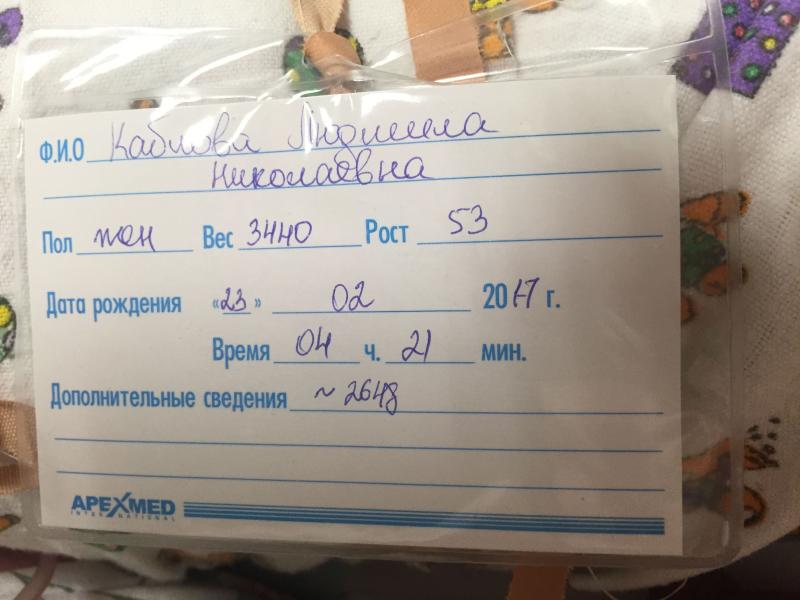 Ф.И.О Каблова Людмила
Николаевна
Пол жен Вес 3440 Рост 53
Дата рождения «23» 02 2017 г.
Время 04 ч. 21 мин.
Дополнительные сведения ~ 2648
APEXMED
INTERNATIONAL